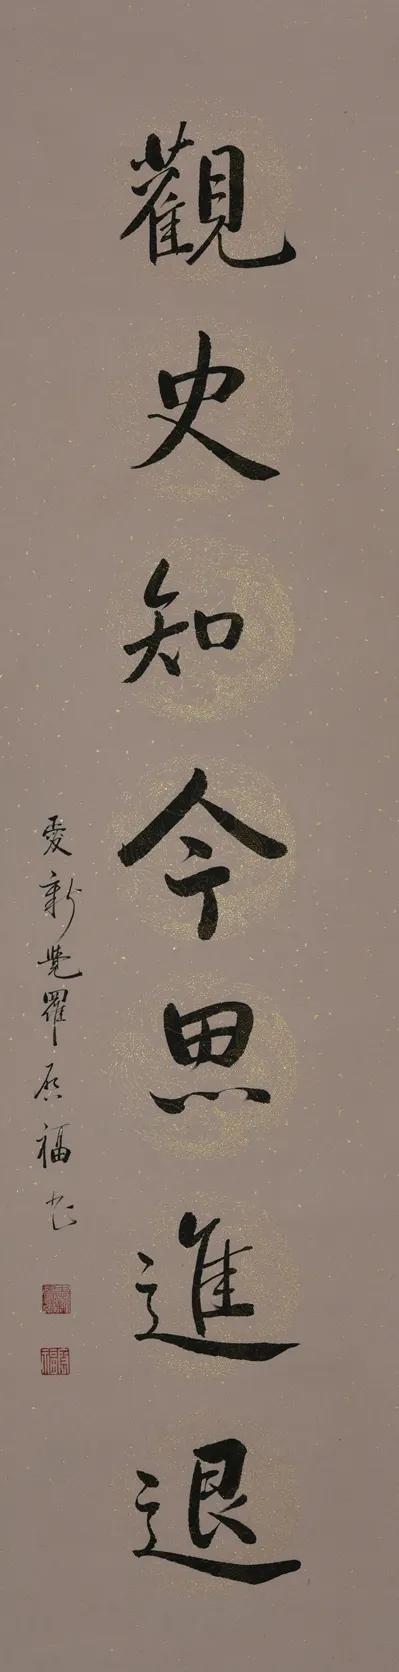 觀史知今思進退
愛新覺羅福书